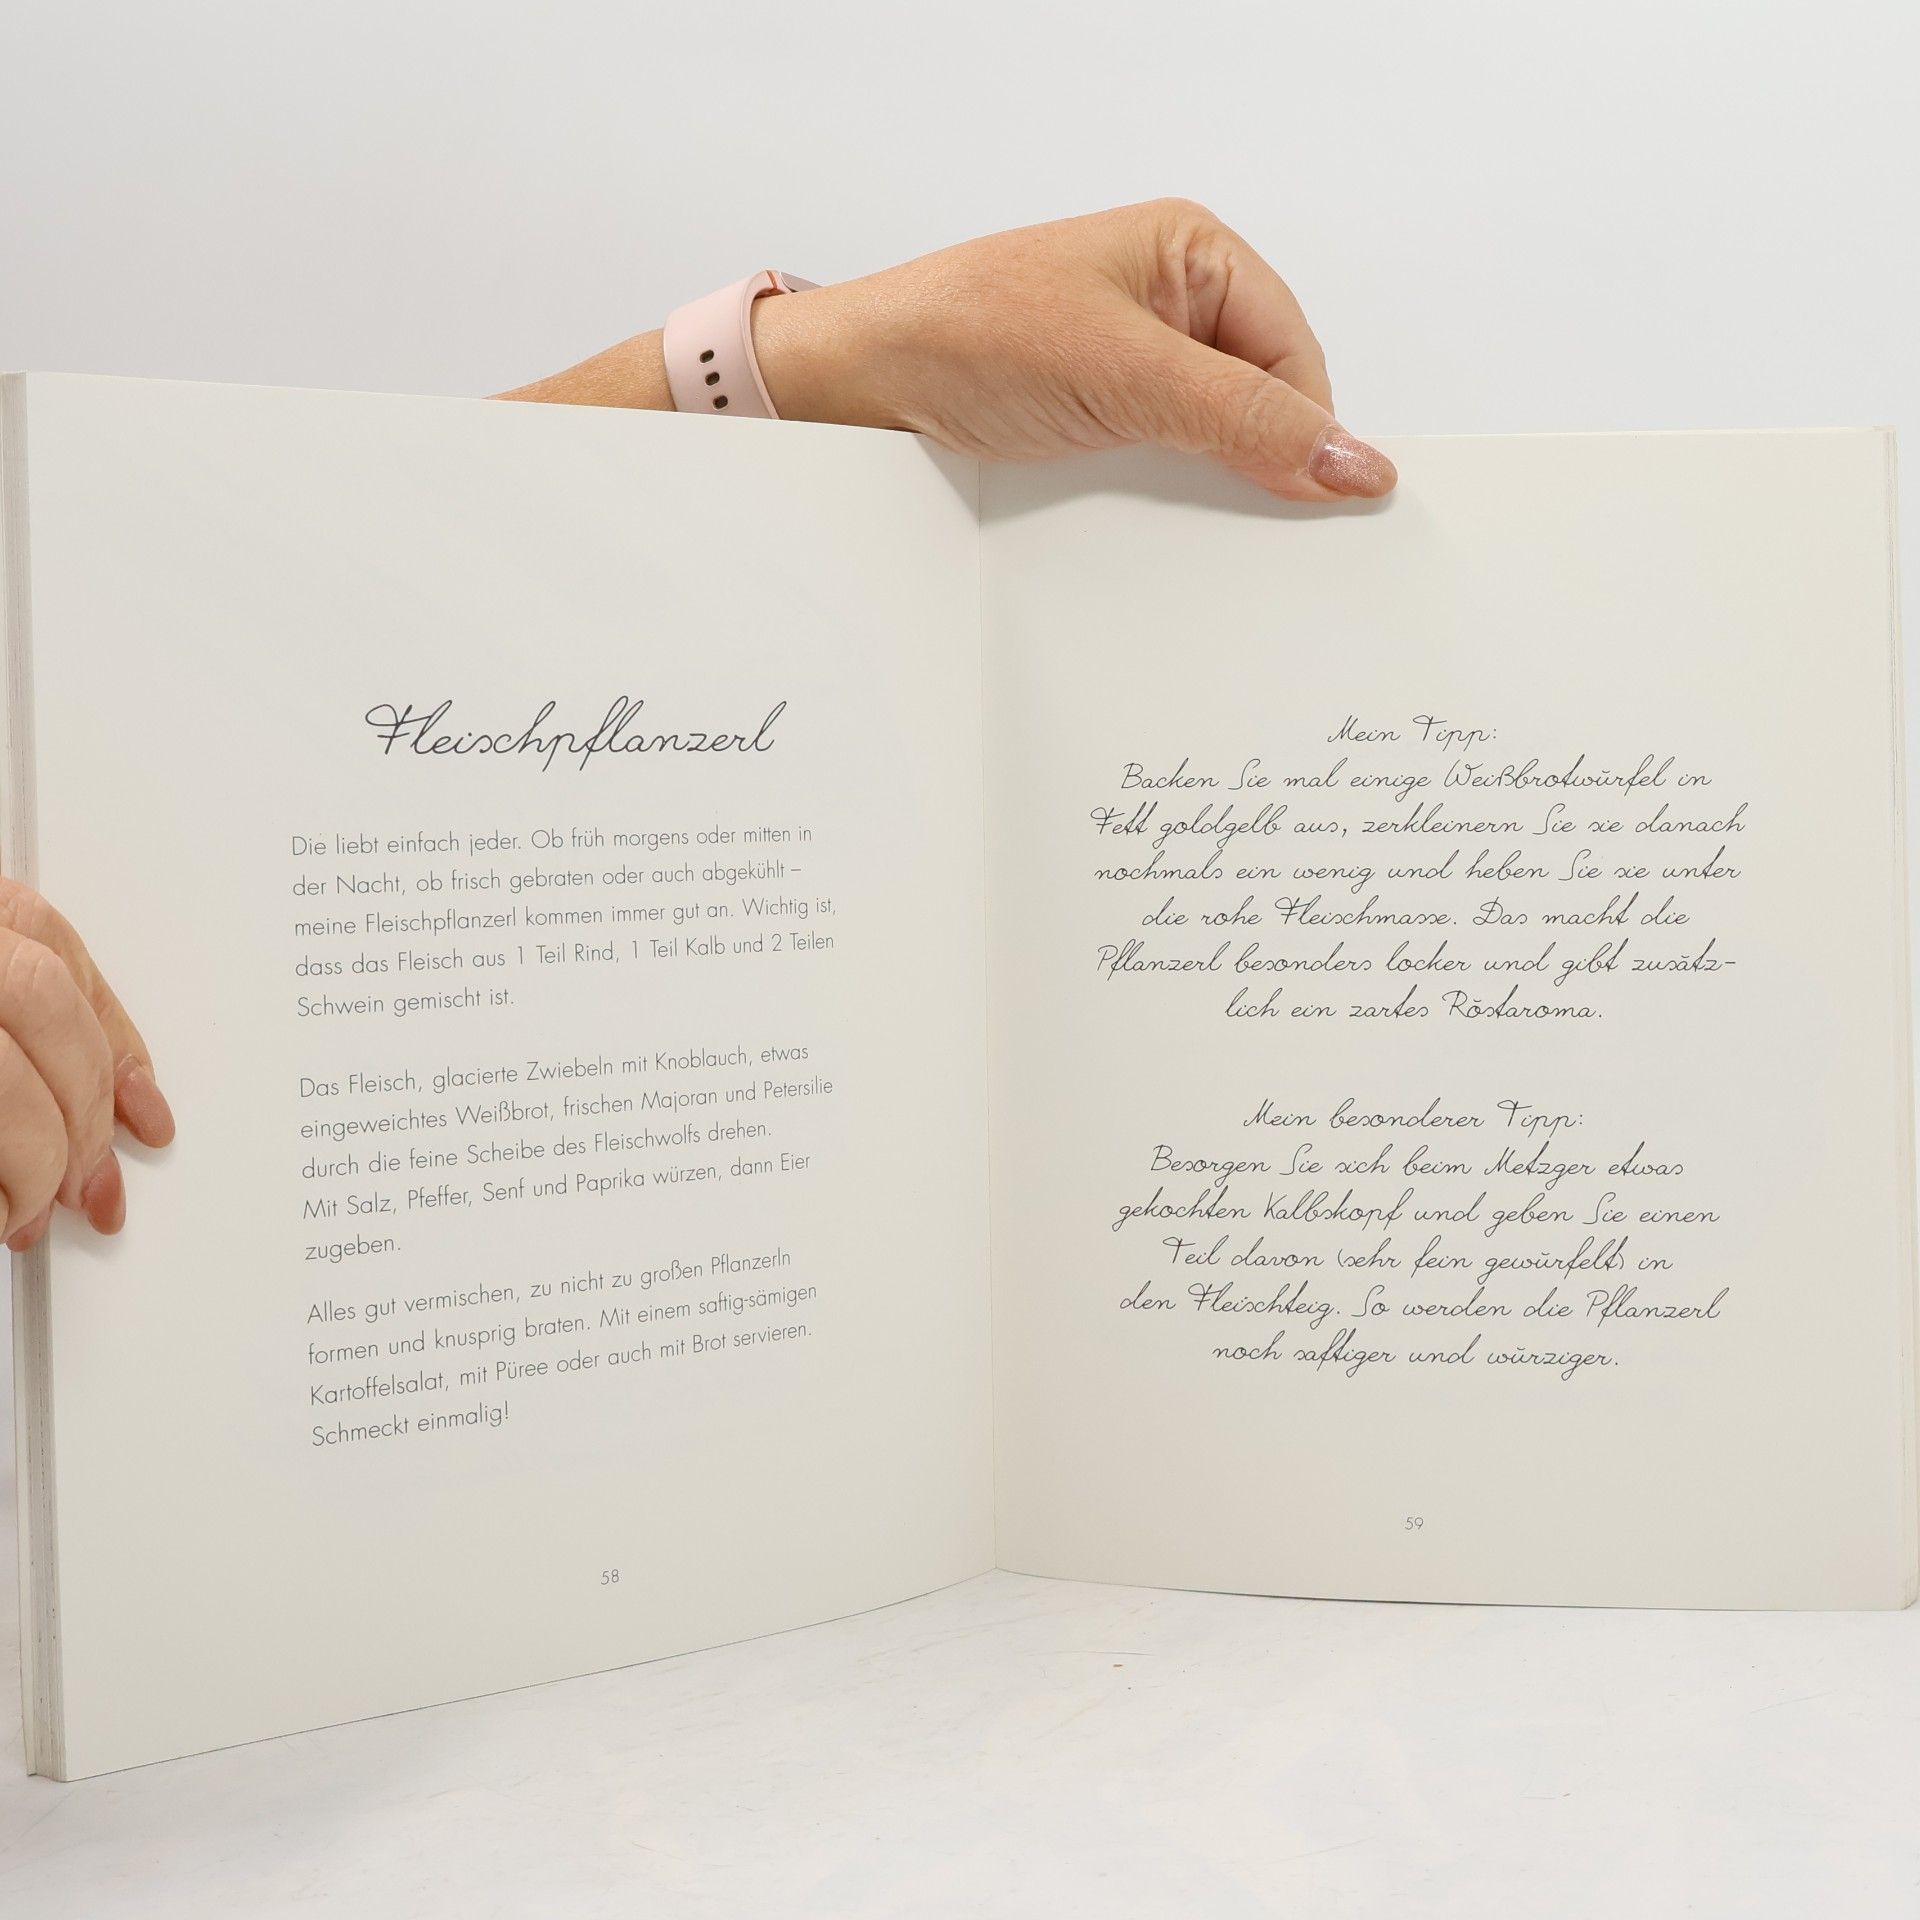 Fleischpflanzerl
Die liebt einfach jeder. Ob früh morgens oder mitten in
der Nacht, ob frisch gebraten oder auch abgekühlt –
meine Fleischpflanzerl kommen immer gut an. Wichtig ist,
dass das Fleisch aus 1 Teil Rind, 1 Teil Kalb und 2 Teilen
Schwein gemischt ist.
Das Fleisch, glacierte Zwiebeln mit Knoblauch, etwas
eingeweichtes Weißbrot, frischen Majoran und Petersilie
durch die feine Scheibe des Fleischwolfs drehen.
Mit Salz, Pfeffer, Senf und Paprika würzen, dann Eier
zugeben.
Alles gut vermischen, zu nicht zu großen Pflanzerln
formen und knusprig braten. Mit einem saftig-sämigen
Kartoffelsalat, mit Püree oder auch mit Brot servieren.
Schmeckt einmalig!
58
Mein Tipp:
Backen Sie mal einige Weißbrotwürfel in
Fett goldgelb aus, zerkleinern Sie sie danach
nochmals ein wenig und heben Sie sie unter
die rohe Fleischmasse. Das macht die
Pflanzerl besonders locker und gibt zusätz-
lich ein zartes Röstaroma.
Mein besonderer Tipp:
Besorgen Sie sich beim Metzger etwas
gekochten Kalbskopf und geben Sie einen
Teil davon (sehr fein gewürfelt) in
den Fleischteig. So werden die Pflanzerl
noch saftiger und würziger.
59